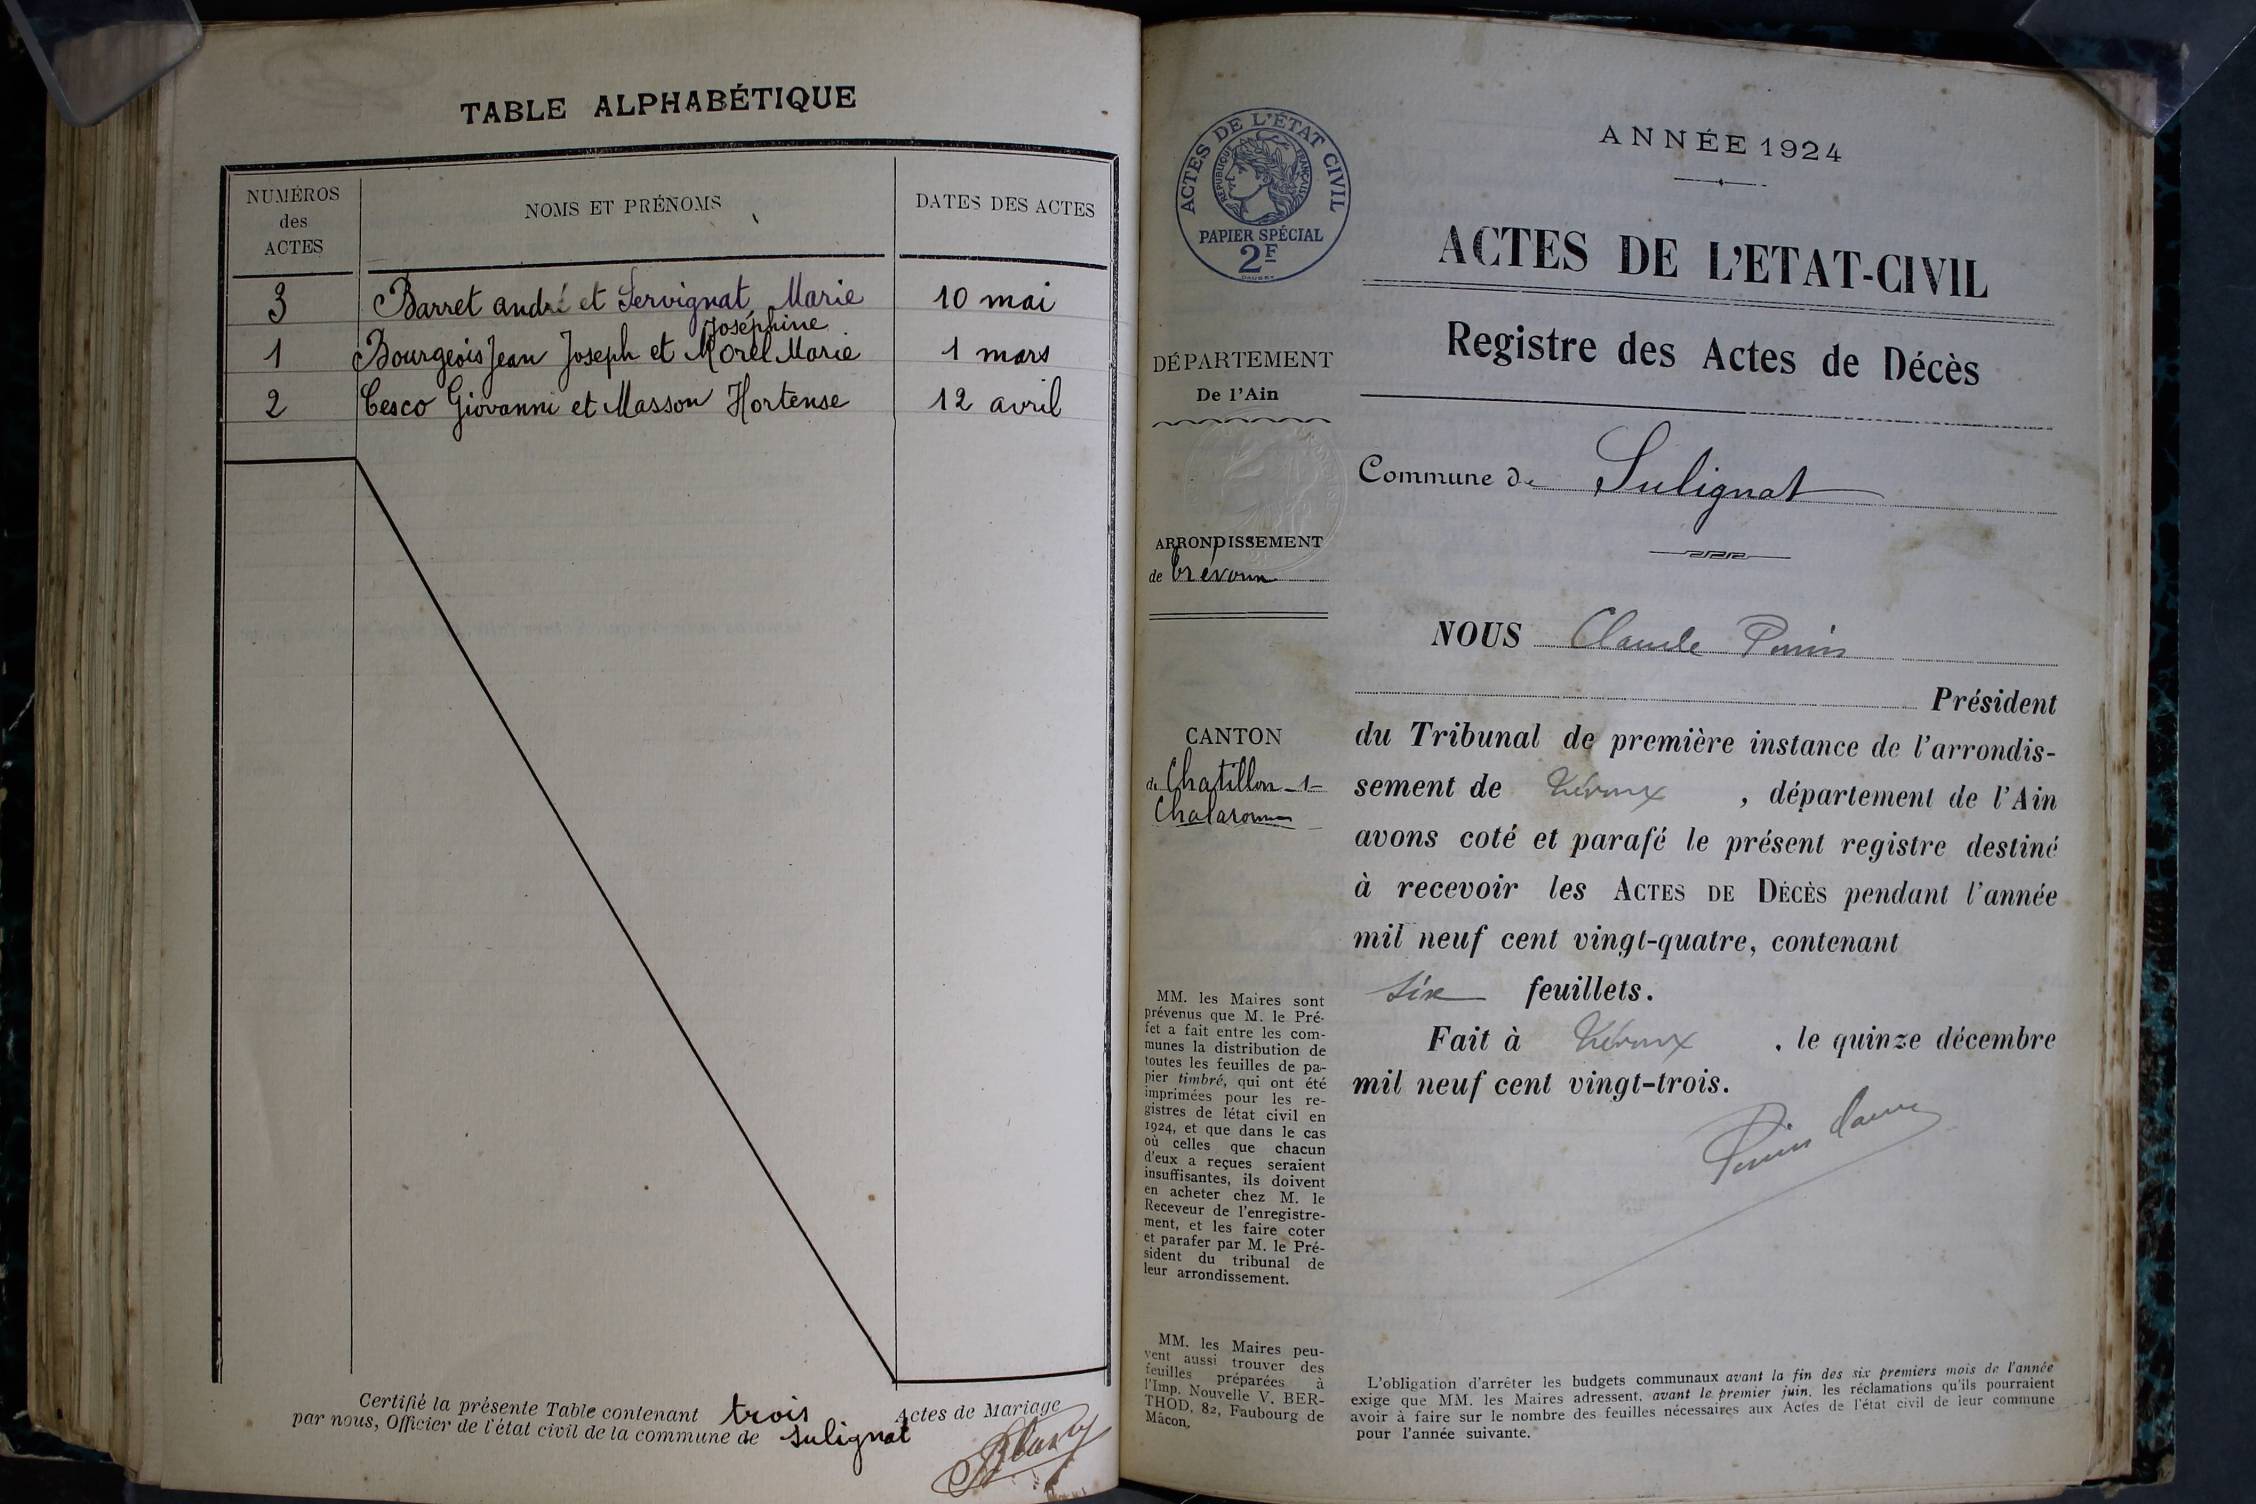 TABLE ALPHABÉTIQUE
NUMÉROS
des
ACTES
NOMS ET PRÉNOMS
DATES DES ACTES
3 Barret andré et Servignat Marie 10 mai
Joséphine
1 Bourgeois Jean Joseph et Morel Marie 1 mars
2 Cesco Giovanni et Masson Hortense 12 avril
Certifié la présente Table contenant trois Actes de Mariage
par nous, Officier de l'état civil de la commune de Sulignat
ACTES DE L'ÉTAT CIVIL
RÉPUBLIQUE FRANÇAISE
PAPIER SPÉCIAL
2F
DAUSSY
ANNÉE 1924
ACTES DE L'ETAT-CIVIL
Registre des Actes de Décès
DÉPARTEMENT
De l'Ain
Commune de Sulignat
ARRONDISSEMENT
de Trévoux
NOUS Claude Perrin
Président
du Tribunal de première instance de l'arrondis-
sement de Trévoux, département de l'Ain
avons coté et parafé le présent registre destiné
à recevoir les ACTES DE DÉCÈS pendant l'année
mil neuf cent vingt-quatre, contenant
six feuillets.
Fait à Trévoux, le quinze décembre
mil neuf cent vingt-trois.
CANTON
de Chatillon-s-
Chalaronne
MM. les Maires sont
prévenus que M. le Pré-
fet a fait entre les com-
munes la distribution de
toutes les feuilles de pa-
pier timbré, qui ont été
imprimées pour les re-
gistres de létat civil en
1924, et que dans le cas
où celles que chacun
d'eux a reçues seraient
insuffisantes, ils doivent
en acheter chez M. le
Receveur de l'enregistre-
ment, et les faire coter
et parafer par M. le Pré-
sident du tribunal de
leur arrondissement.
MM. les Maires peu-
vent aussi trouver des
feuilles préparées à
l'Imp. Nouvelle V. BER-
THOD, 82, Faubourg de
Mâcon.
L'obligation d'arrêter les budgets communaux avant la fin des six premiers mois de l'année
exige que MM. les Maires adressent, avant le premier juin, les réclamations qu'ils pourraient
avoir à faire sur le nombre des feuilles nécessaires aux Actes de l'état civil de leur commune
pour l'année suivante.